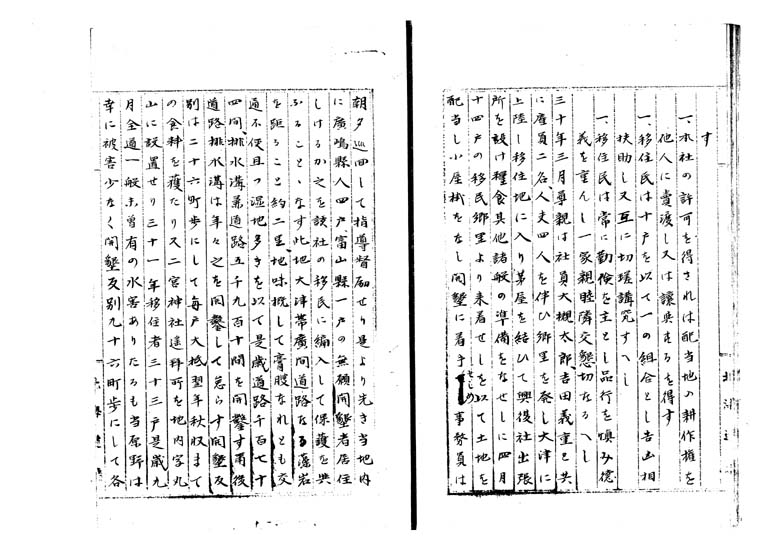 す
一、本社の許可を得されは配当地の耕作権を
他人に賣渡し又は譲與するを得す
一、移住民は十戸を以て一の組合とし吉凶相
扶助し又互に切瑳講究すへし
一、移住民は常に勤儉を主とし品行を慎み徳
義を重んし一家親睦隣交懇切なるへし
三十年三月尊親は社員大槻太郎、吉田義重と共
に雇員二名、人夫四人を伴ひ郷里を発し大津に
上陸し移住地に入り茅屋を結ひて興復社出張
所を設け糧食具其他諸般の準備をなせしに四月
十四戸の移民郷里より来着せしを以て土地を
配当し小屋掛をなし開墾に着手せしめ事務員は
朝夕巡回して指導督励せり是より先き当地内
に廣嶋縣人四戸、富山縣一戸の無願開墾者居住
しけるか之を該社の移民に編入して保護を與
ふることゝなす此地大津帯廣間道路なる藻岩
を距ること約二里、地味概して膏腴なれとも交
通不便且つ湿地多きを以て是歳道路千百七十
四間、排水溝兼道路五千九百十間を開鑿す爾後
道路排水溝は年々之を開鑿して怠らす開墾反
別は二十六町歩にして毎戸大抵翌年秋収まて
の食料を獲たり又二宮神社遥拝所を地内字丸
山に設置せり三十一年移住者三十三戸是歳九
月全道一般未曾有の水害ありたるも当原野は
幸に被害少なく開墾反別九十六町歩にして各